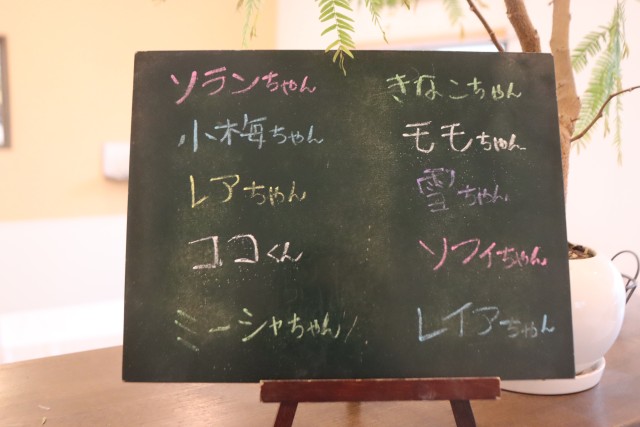 ソランちゃん
小梅ちゃん
レアちゃん
ココくん
ミーシャちゃん
きなこちゃん
モモちゃん
雪ちゃん
ソフィちゃん
レイアちゃん